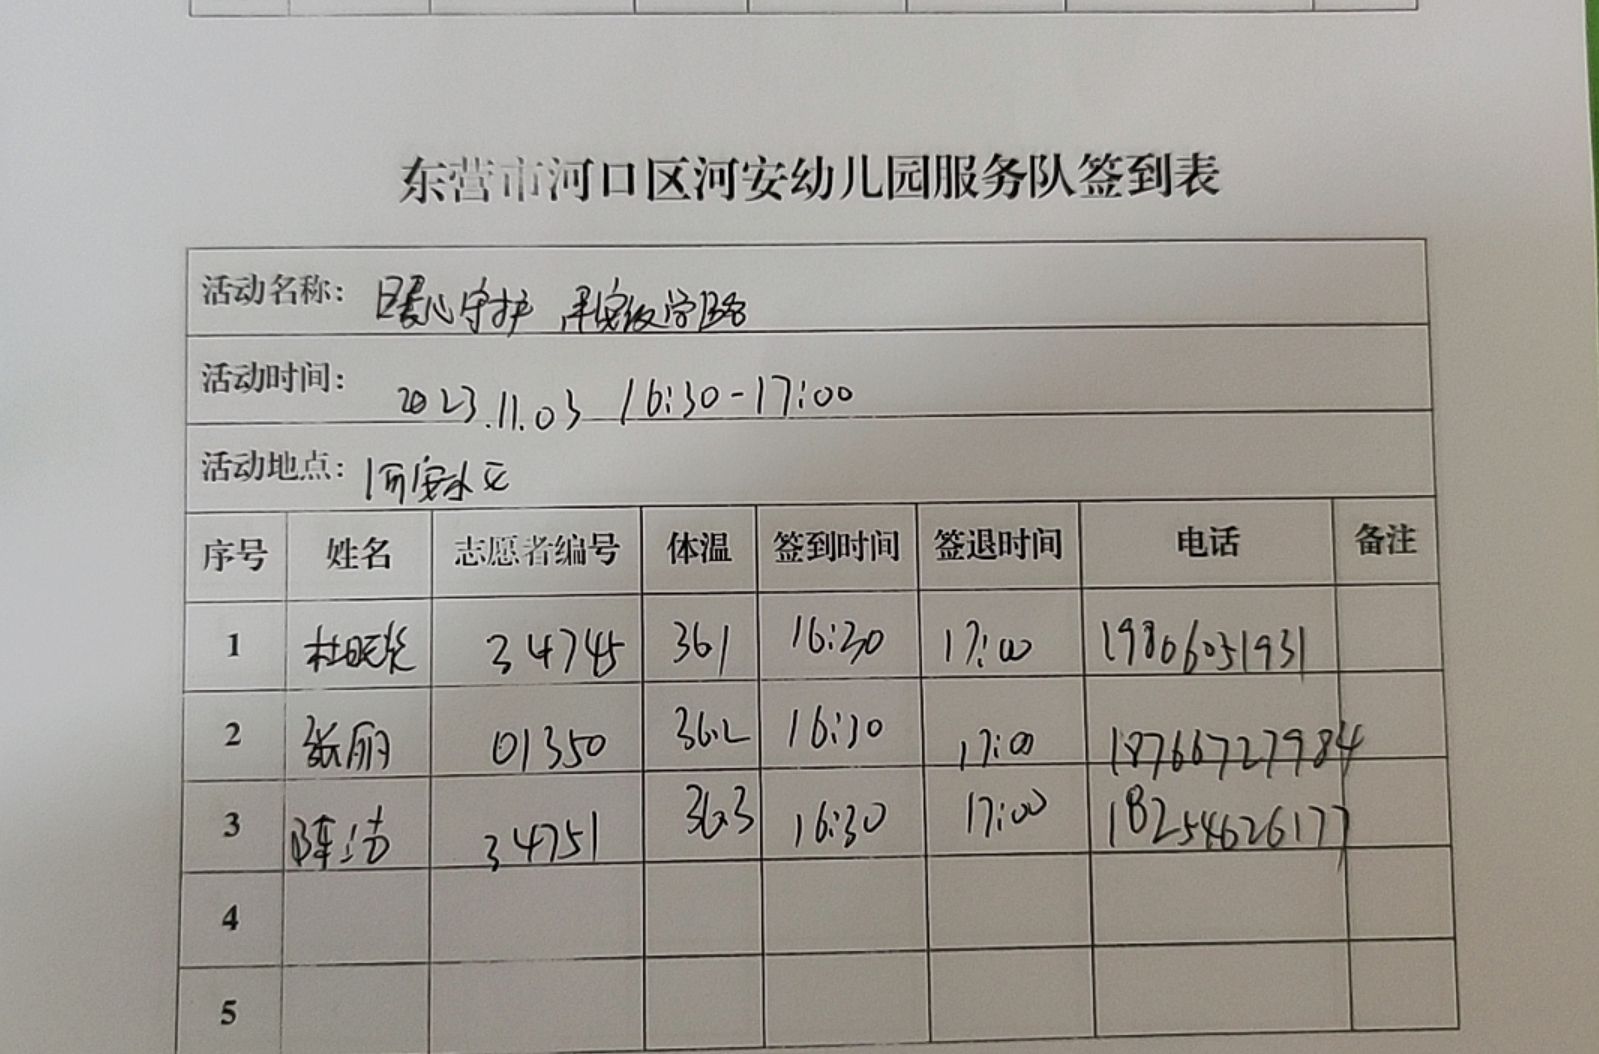 东营市河口区河安幼儿园服务队签到表
活动名称: 暖心守护 平安放学路
活动时间: 2023.11.03 16:30-17:00
活动地点: 河安小区
序号 姓名 志愿者编号 体温 签到时间 签退时间 电话 备注
1 34745 36.1 16:30 17:00 19806031931
2 张丽 01350 36.2 16:30 17:00 18766727984
3 陈洁 34751 36.3 16:30 17:00 18254626177
4
5